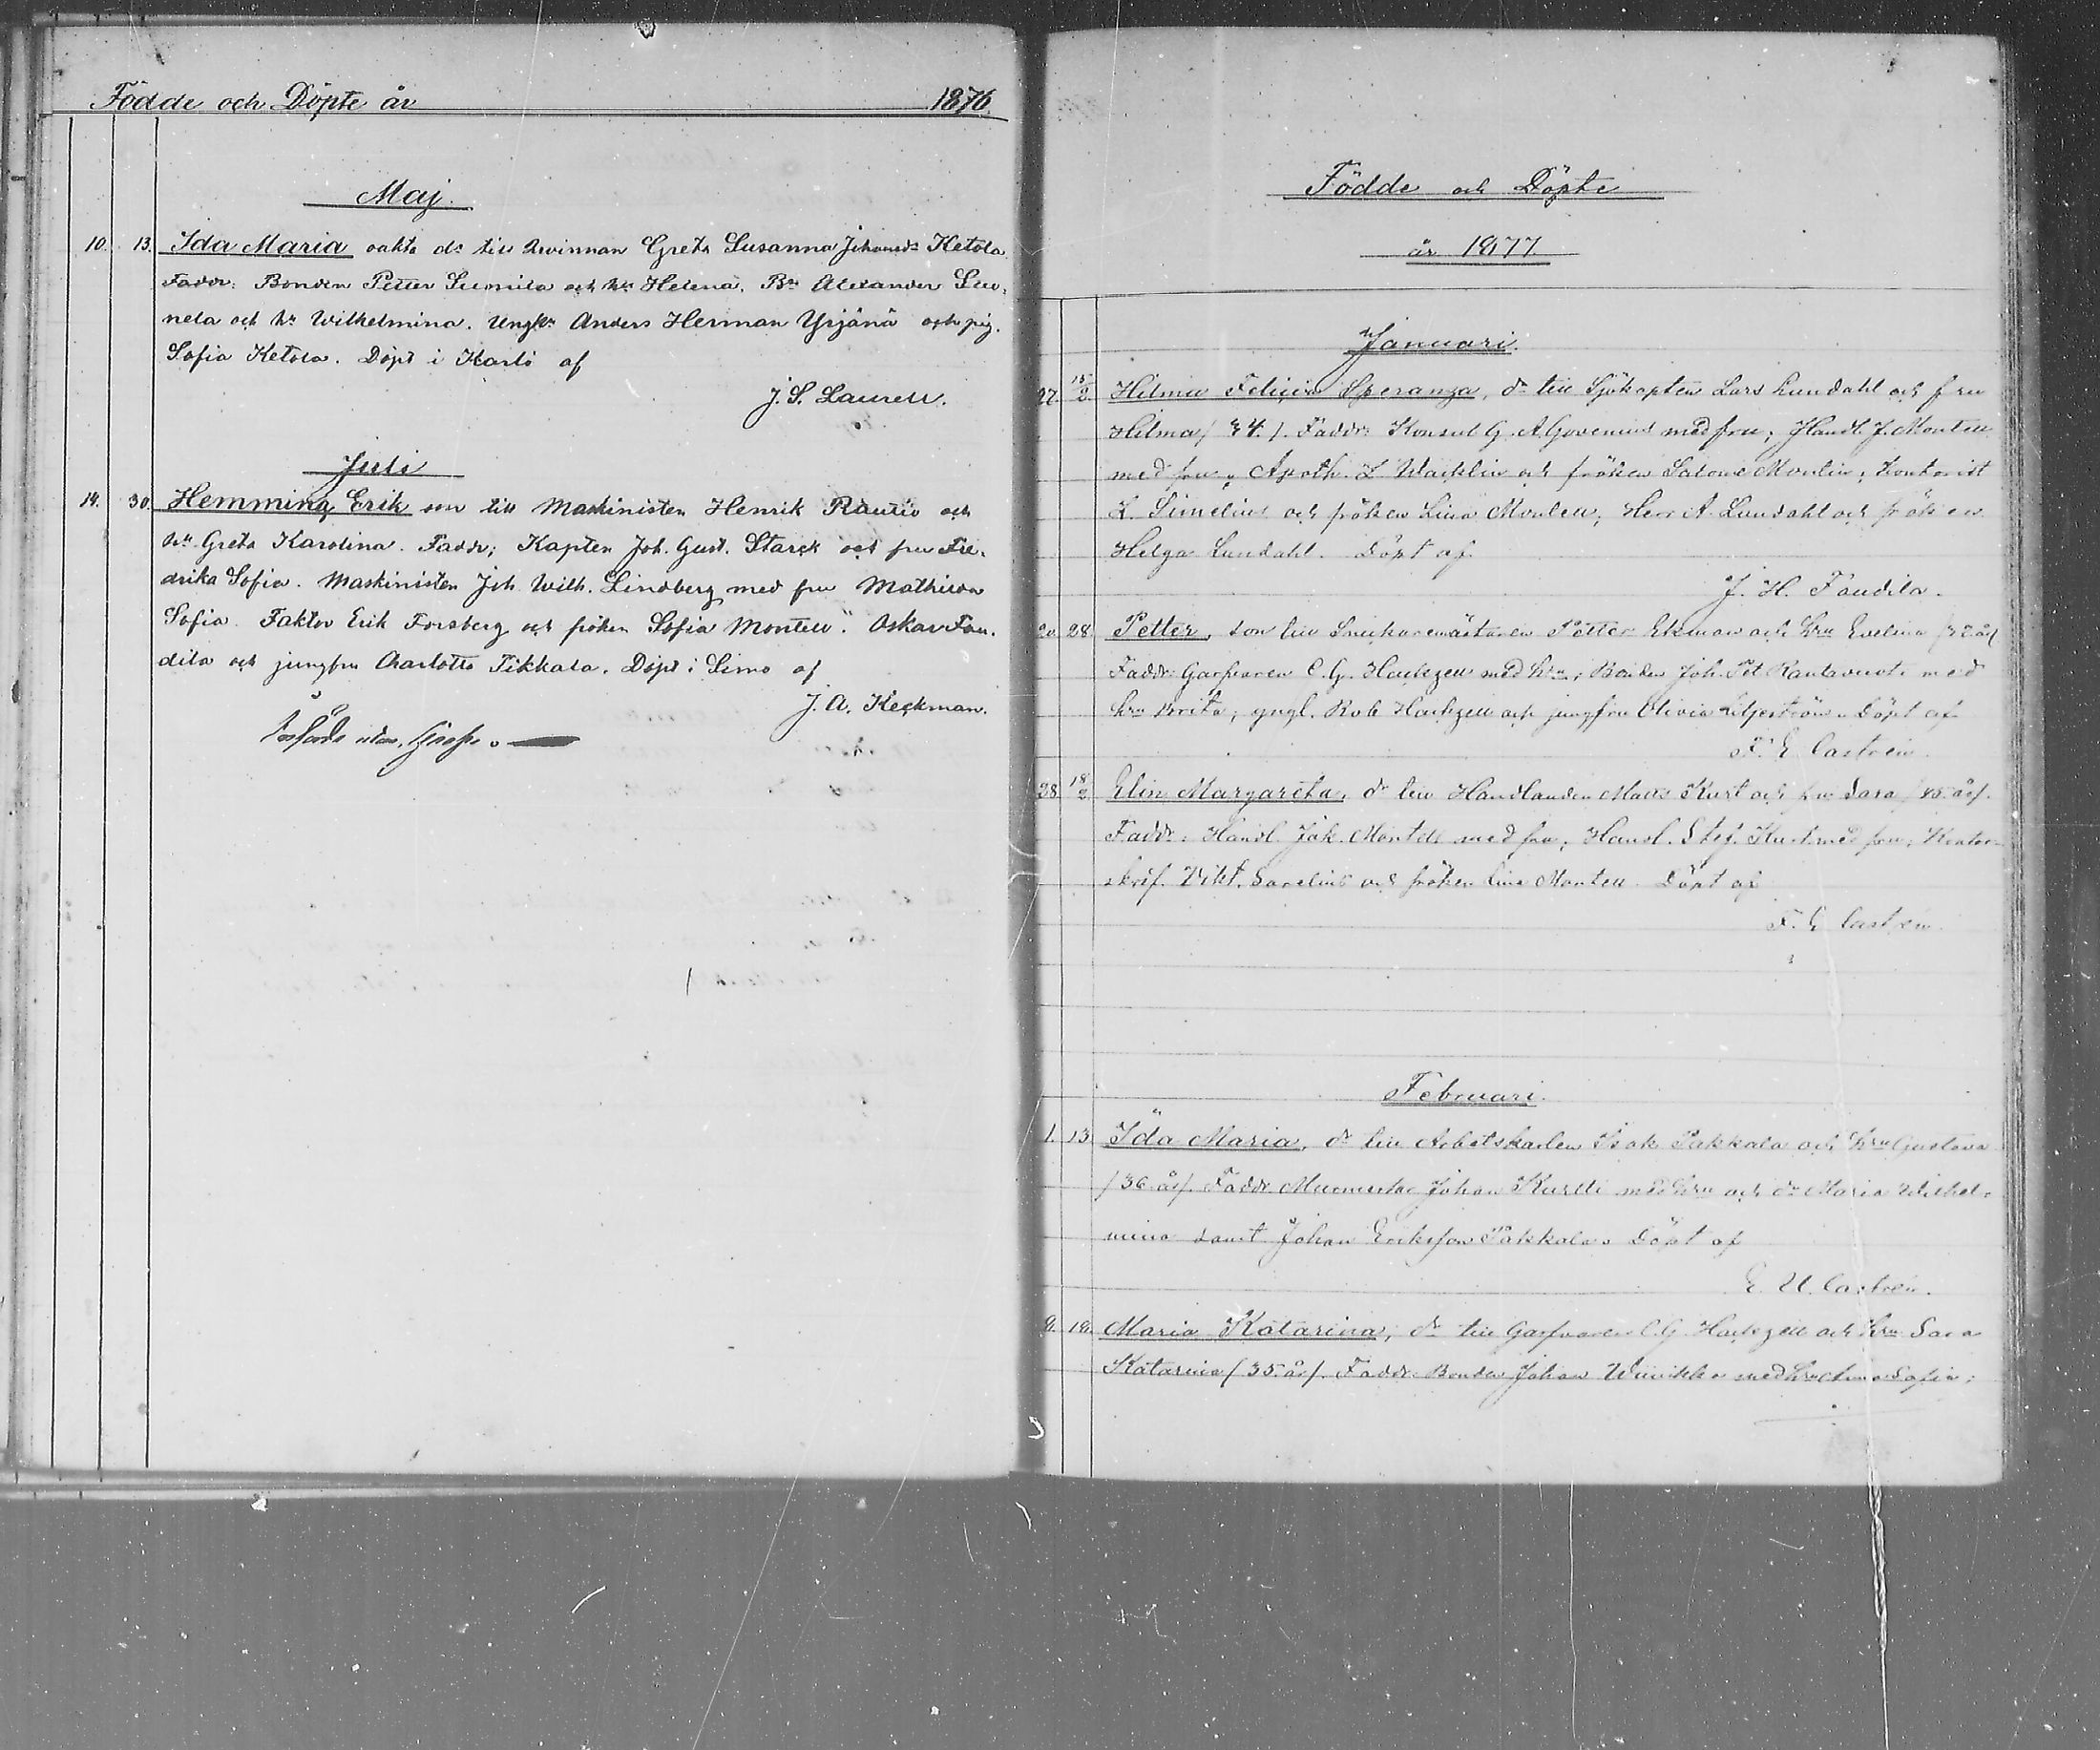 Födde och Döpte år 1876.
Maj.
10. 13. Ida Maria oäkta dr till kvinnan Greta Susanna Johansdr Ketola
Faddr: Bonden Petter Suomila och hu Helena. Bn Alexander Suo-
nela och hu Wilhelmina. Ungk: Anders Herman Yrjänä och pig.
Sofia Ketola. Döpt i Karlö af
J. S. Laurell.
Juli
14. 30. Hemming Erik son till Maskinisten Henrik Rautio och
hu Greta Karolina. Faddr; Kapten Joh. Gust. Starck och fru Fre-
drika Sofia. Maskinisten Joh. Wilh. Lindberg med fru Mathilda
Sofia. Faktor Erik Forsberg och fröken Sofia Montell. Oskar Fan-
dila och jungfru Charlotta Tikkala. Döpt i Simo af
J. A. Heckman.
Födde och Döpte
år 1877.
Januari.
27. 15/2 Hilma Felicia Speranza, dr till Sjökapten Lars Lundahl och fru
Hilma / 34. /. Faddr: Konsul G. A. Govenius med fru; Handl. J. Montell
med fru, Apoth. L. Wacklin och fröken Salome Montin; Kontorist
L. Simelius och fröken Lina Montell; Herr A. Lundahl och fröken
Helga Lundahl. Döpt af
J. H. Fandila.
20. 28. Petter, son till Snickaremästaren Petter Ekman och hru Evelina /32 år/
Faddr: Garfvaren C. G. Hackzell med hru; Bonden Joh. Pet. Rantavuoti med
hru Brita; yngl. Rob. Hackzell och jungfru Olivia Liljeström. Döpt af
F. E. Castrén.
28. 18/2 Elin Margareta, dr till Handlanden Matts Kurt och fru Sara /45 år/.
Faddr: Handl. Jak. Montell med fru; Handl. Stef. Kurt med fru; Kontor-
skrif. Vikt. Sarelius och fröken Lina Montell. Döpt af
F. E. Castrén.
Februari.
1. 13. Ida Maria, dr till Arbetskarlen Isak Pakkala och hru Gustava
/36 år/. Faddr. Murmestar Johan Kurtti med hru och dr Maria Wilhel-
mina samt Johan Eriksson Pakkala. Döpt af
E. U. Castrén.
9. 18. Maria Katarina, dr till Garfvaren C. G. Hackzell och hru Sara
Katarina /35 år/. Faddr. Bonden Johan Wuirikko med hru Anna Sofia;